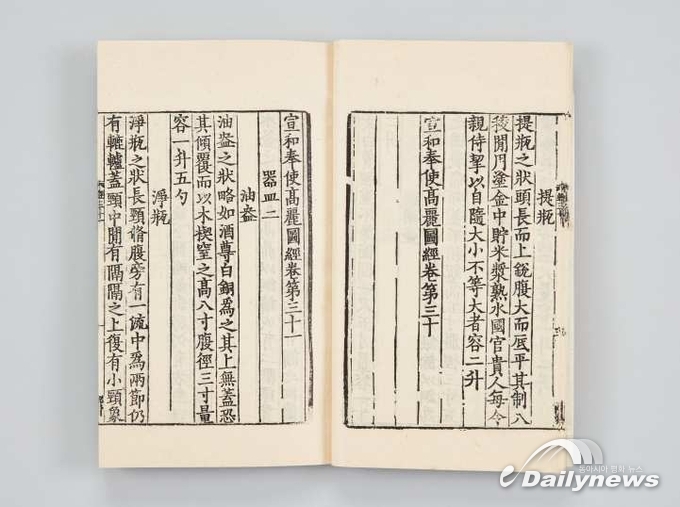 提瓶
提瓶之狀頭長而上銳腹大而底平其制八
稜閒用塗金中貯米漿熟水國官貴人每令
親侍挈以自隨大小不等大者容二升
宣和奉使髙麗國經卷第三十
宣和奉使髙麗國經卷第三十一
器皿二
油盎
油盎之狀略如酒尊白銅爲之其上無蓋恐
其傾覆而以木楔窒之髙八寸腹徑三寸量
容一升五勺
淨瓶
淨瓶之狀長頸脩腹旁有一流中爲兩節仍
有轆轤蓋頸中閒有隔隔之上復有小頸象
동아시아 평화 뉴스
eDailynews